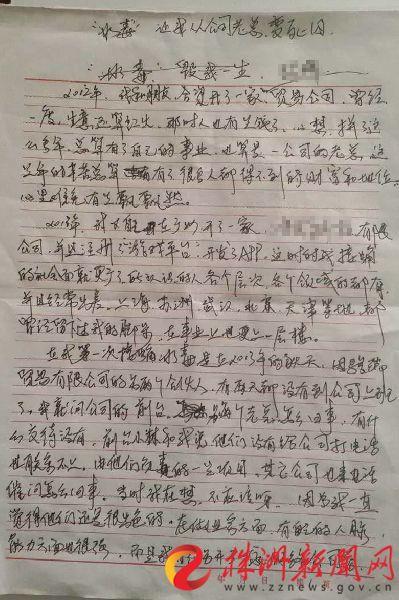 "冰毒"迫我从公司老总变死囚
"冰毒"毁我一生
2012年,我和朋友合资开了一家贸易公司,曾经
一度生意还算红火,那时人也有些飘了,心想,拼了这
么多年,总算有了自己的事业,也算是一公司的老总,这
些年的辛苦总算有了很多人都得不到的财富和地位。
心里难免有点飘飘然。
2013年,我又在开了一家 有限
公司,并且注册"游戏平台"开发了APP,这时的我接触
的社会面就更广了,所以认的人各个层次各个领域的都有
并且经常出差,上海 苏州 武汉,北京 天津等地,都
曾经留过我的脚印,在事业上也更上一层楼。
在我第一次接触冰毒是在2013年的秋天,因
贸易有限公司的另两个合伙人,有两天都没有到公司上班
了,我就问公司的前台,每个老总怎么回事,有什
么交待没有,前台小妹和我说他们没有给公司打电话
也联系不上,由他们负责的一些项目,其它公司也来电话
催问怎么回事。当时我在想,不应该呀,因为我一直
觉得他们还是很出色的,在住业务方面,有的人脉,
能力方面也很强,于是我
株洲新闻网
www.zznews.gov.cn